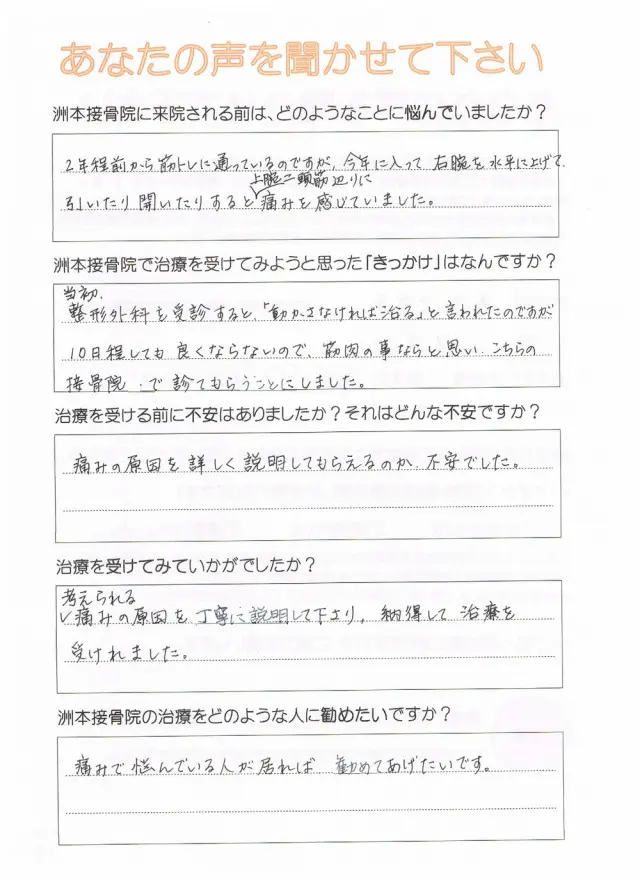 あなたの声を聞かせて下さい
洲本接骨院に来院される前は、どのようなことに悩んでいましたか？
2年程前から筋トレに通っているのですが、今年に入って 右腕を水平に上げて
上腕二頭筋辺りに
引いたり 開いたりすると 痛みを感じていました。
洲本接骨院で治療を受けてみようと思った「きっかけ」はなんですか？
当初、
整形外科を受診すると、「動かさなければ治る」と言われたのですが
10日程しても 良くならないので、筋肉の事ならと思い、こちらの
接骨院 で 診てもらうことにしました。
治療を受ける前に不安はありましたか？それはどんな不安ですか？
痛みの原因を 詳しく 説明してもらえるのか、不安でした。
治療を受けてみていかがでしたか？
考えられる
痛みの原因を 丁寧に説明して下さり、納得して 治療を
受けれました。
洲本接骨院の治療をどのような人に勧めたいですか？
痛みで 悩んでいる人が居れば 勧めてあげたいです。